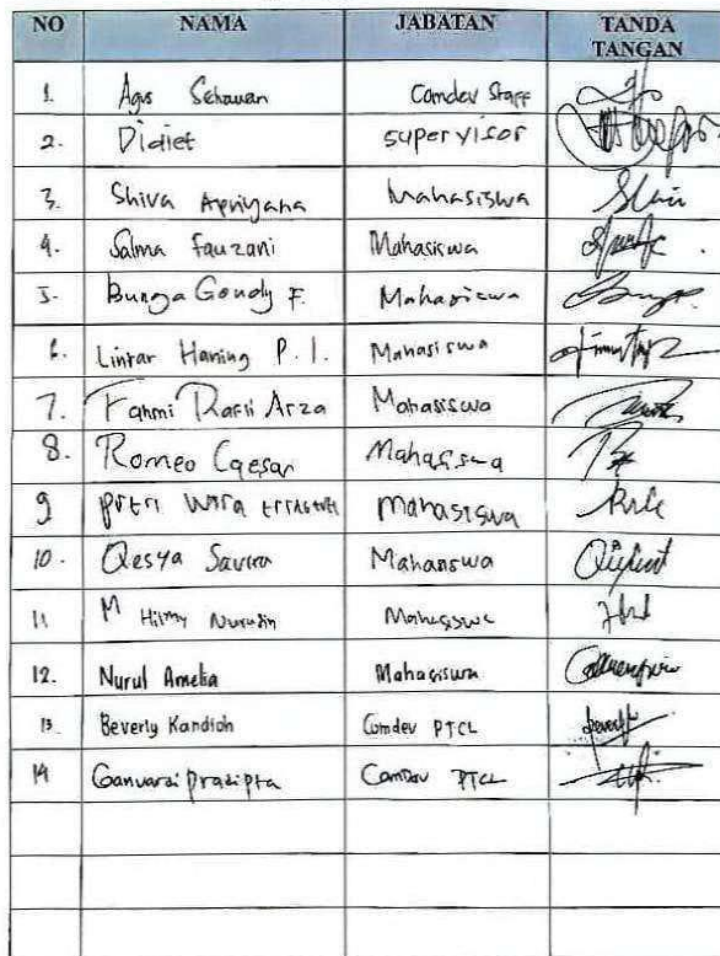 NO NAMA JABATAN TANDA TANGAN
1. Agus Setiawan Comdev Staff
2. Didiet supervisor
3. Shiva Apriyana Mahasiswa
4. Salma Fauzani Mahasiswa
5. Bunga Gendy F. Mahasiswa
6. Lintar Haning P. I. Mahasiswa
7. Fahmi Rafii Arza Mahasiswa
8. Romeo Caesar Mahasiswa
9 putri Wira Mahasiswa
10. Qesya Savira Mahasiswa
11 M Hilmy Nurudin Mahasiswa
12. Nurul Amelia Mahasiswa
13. Beverly Kandioh Comdev PTCL
14 Pradipta Comdev PTCL